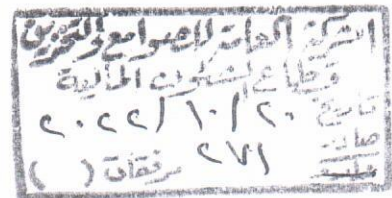 الشركة العامة للصوامع والتخزين
قطاع الشئون المالية
تاريخ ٢٠٢٢/١٠/٢٠
صادر ٢٧١ مرفقات ( )